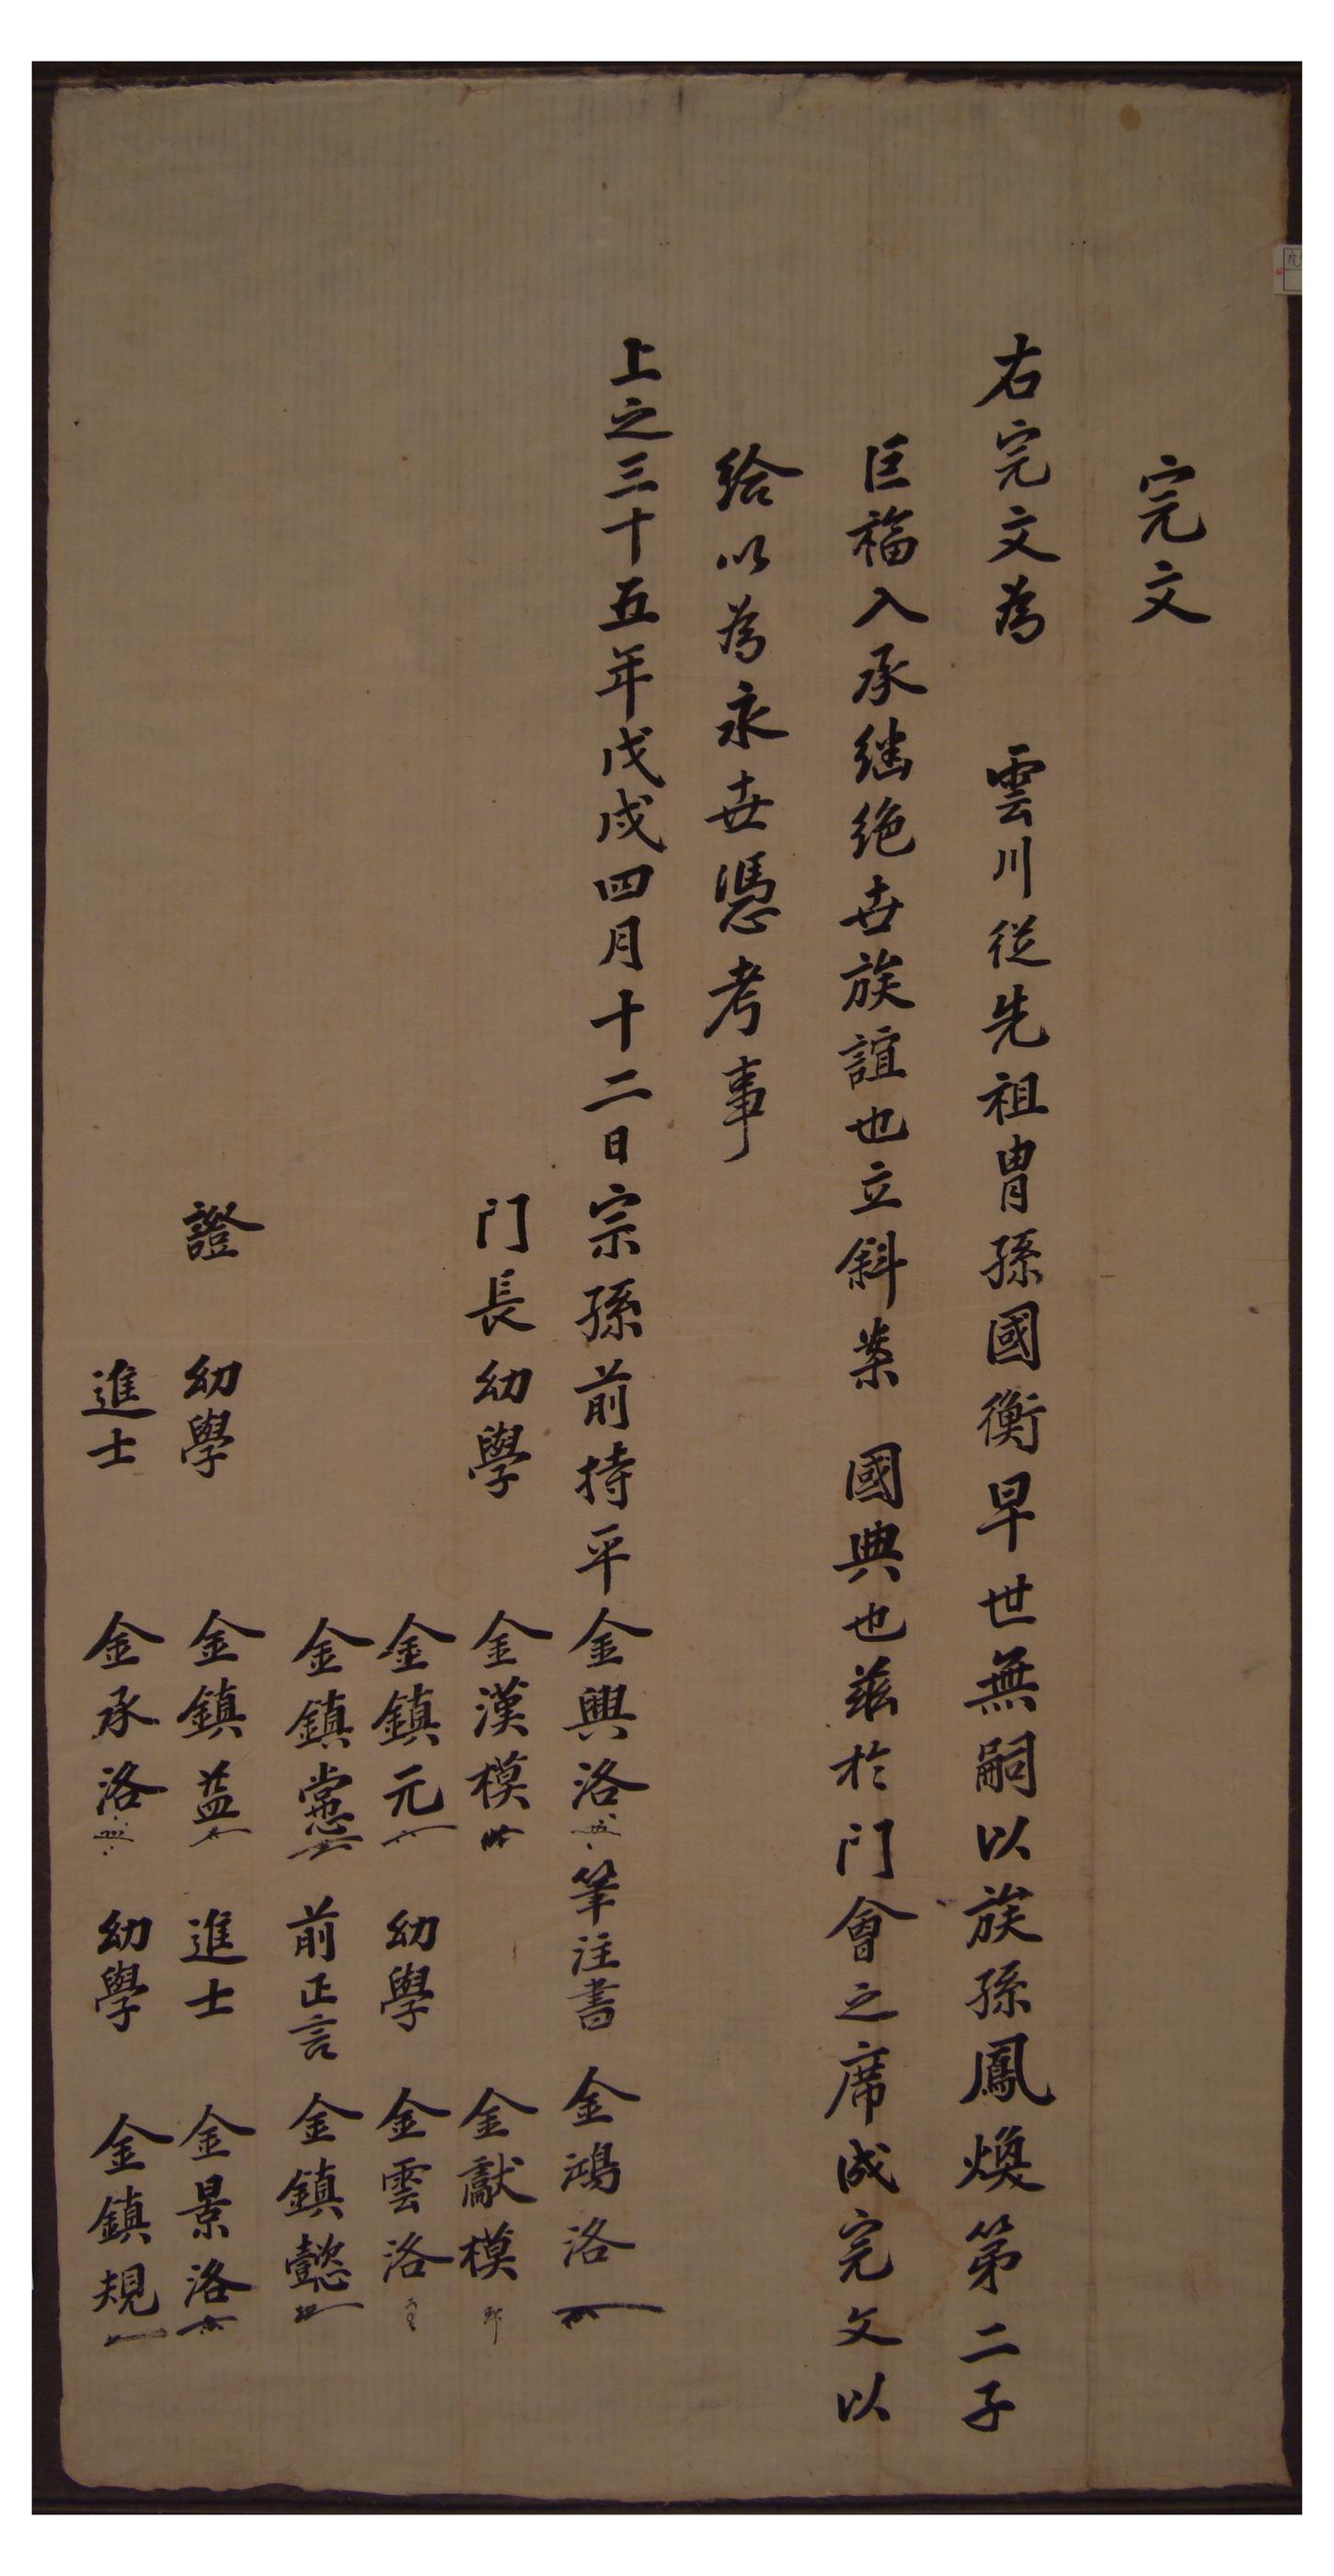 完文
右完文為 雲川從先祖胄孫國衡早世無嗣以族孫鳳煥第二子
巨福入承継絶世族誼也立斜葉 國典也玆於門會之席成完文以
給以為永世憑考事
上之三十五年戊戌四月十二日宗孫前持平金興洛 筆注書 金鴻洛
門長幼學 金漢模 金獻模
金鎮元 幼學 金雲洛
金鎮戃 前正言 金鎮懿
證 幼學 金鎮益 進士 金景洛
進士 金承洛 幼學 金鎮規